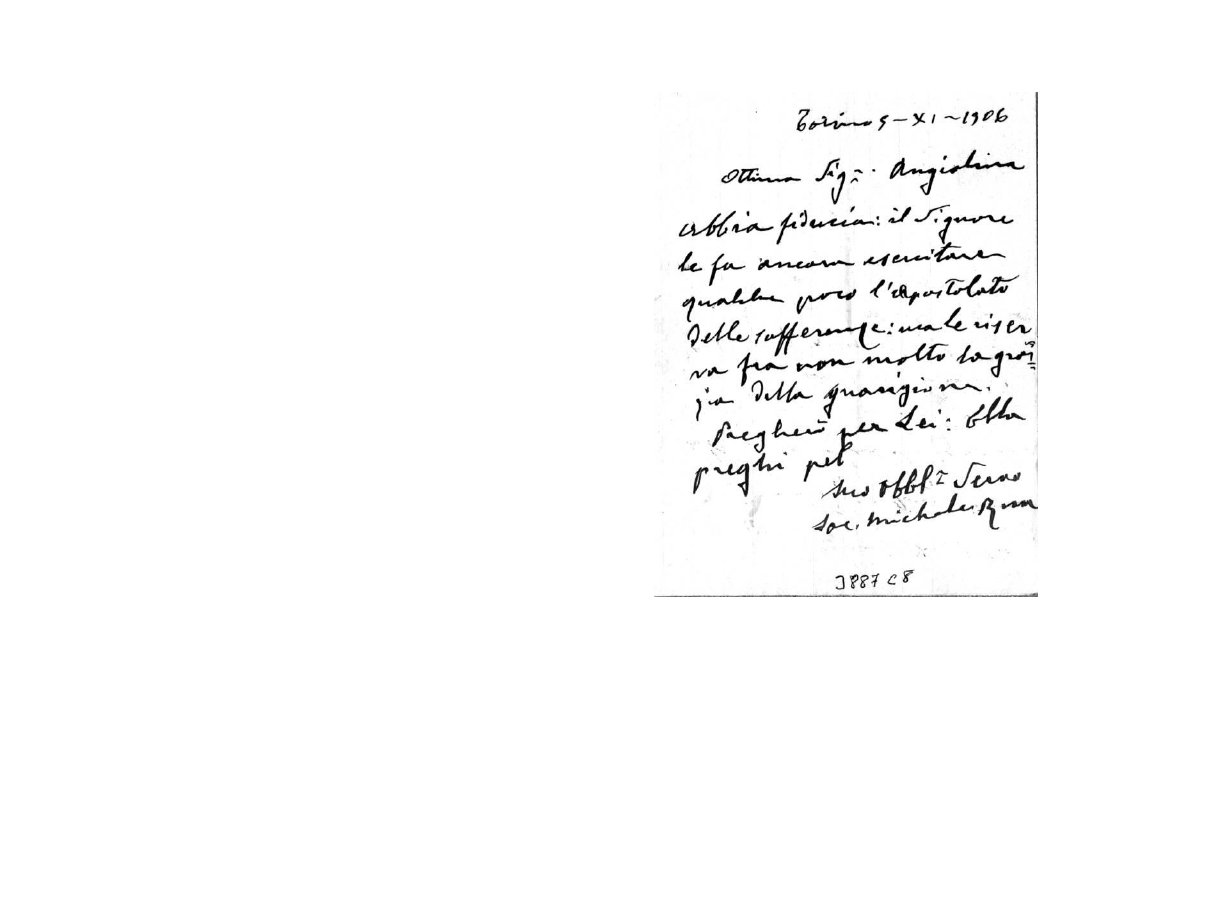 Torino 5-XI-1906
Ottima Sig.ª Angiolina
Abbia fiducia: il Signore
le fa ancora esercitare
qualche poco l'apostolato
delle sofferenze: ma le riser
va fra non molto la gra
zia della guarigione.
Pregherò per Lei: Ella
preghi pel
Suo Obbl.º Servo
Sac. Michele Rua
3887 C8